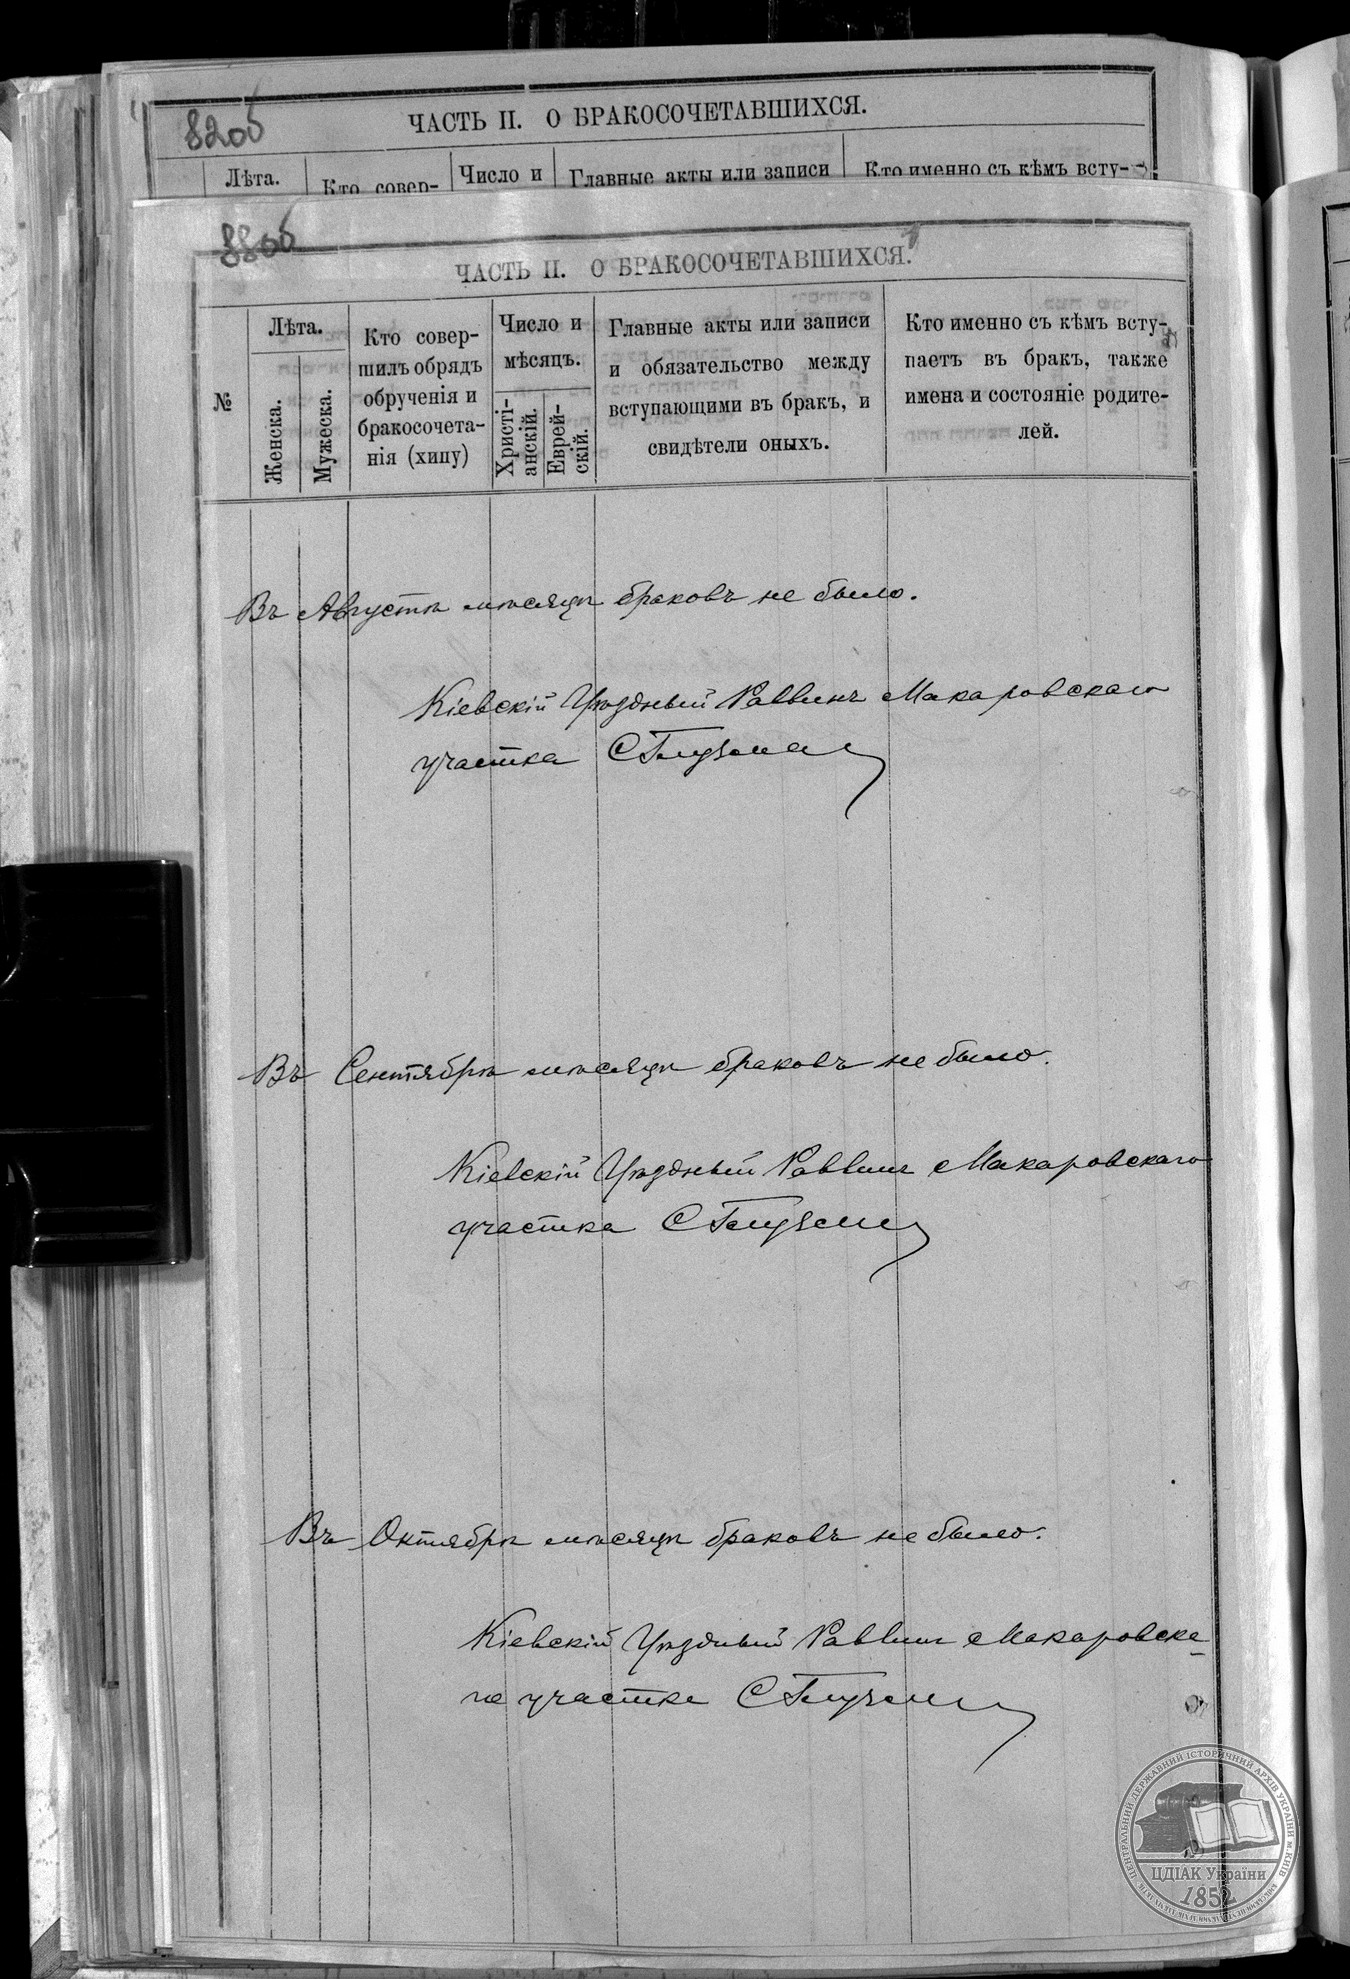 820б
ЧАСТЬ II. О БРАКОСОЧЕТАВШИХСЯ.
Лѣта.
Кто совер-
Число и
Главные акты или записи
Кто именно съ кѣмъ всту-
880б
ЧАСТЬ II. О БРАКОСОЧЕТАВШИХСЯ.
№
Лѣта.
Женска.
Мужеска.
Кто совер-
шилъ обрядъ
обрученія и
бракосочета-
нія (хипу)
Число и
мѣсяцъ.
Христі-
анскій.
Еврей-
скій.
Главные акты или записи
и обязательство между
вступающими въ бракъ, и
свидѣтели оныхъ.
Кто именно съ кѣмъ всту-
паетъ въ бракъ, также
имена и состояніе родите-
лей.
Въ Августѣ мѣсяцѣ браковъ не было.
Кіевскій Уѣздный Раввинъ Макаровскаго
участка С Глузман
Въ Сентябрѣ мѣсяцѣ браковъ не было.
Кіевскій Уѣздный Раввинъ Макаровскаго
участка С Глузман
Въ Октябрѣ мѣсяцѣ браковъ не было.
Кіевскій Уѣздный Раввинъ Макаровска-
го участка С Глузман
ЦЕНТРАЛЬНИЙ ДЕРЖАВНИЙ ІСТОРИЧНИЙ АРХІВ УКРАЇНИ м. КИЇВ
ЦДІАК України
1852